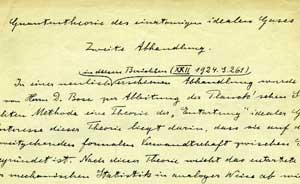 Quantentheorie des einatomigen idealen Gases
Zweite Abhandlung.
in diesen Berichten (XXII 1924. S. 261)
In einer neulich erschienenen Abhandlung wurde
von Herrn D. Bose zur Ableitung der Planck'schen
hten Methode eine Theorie der „Entartung" idealer G
nteresse dieser Theorie liegt darin, dass sie auf
weitgehenden formalen Verwandtschaft zwischen
gründet ist. Nach dieser Theorie weicht das entartete
mechanischen Statistik in analoger Weise ab wie